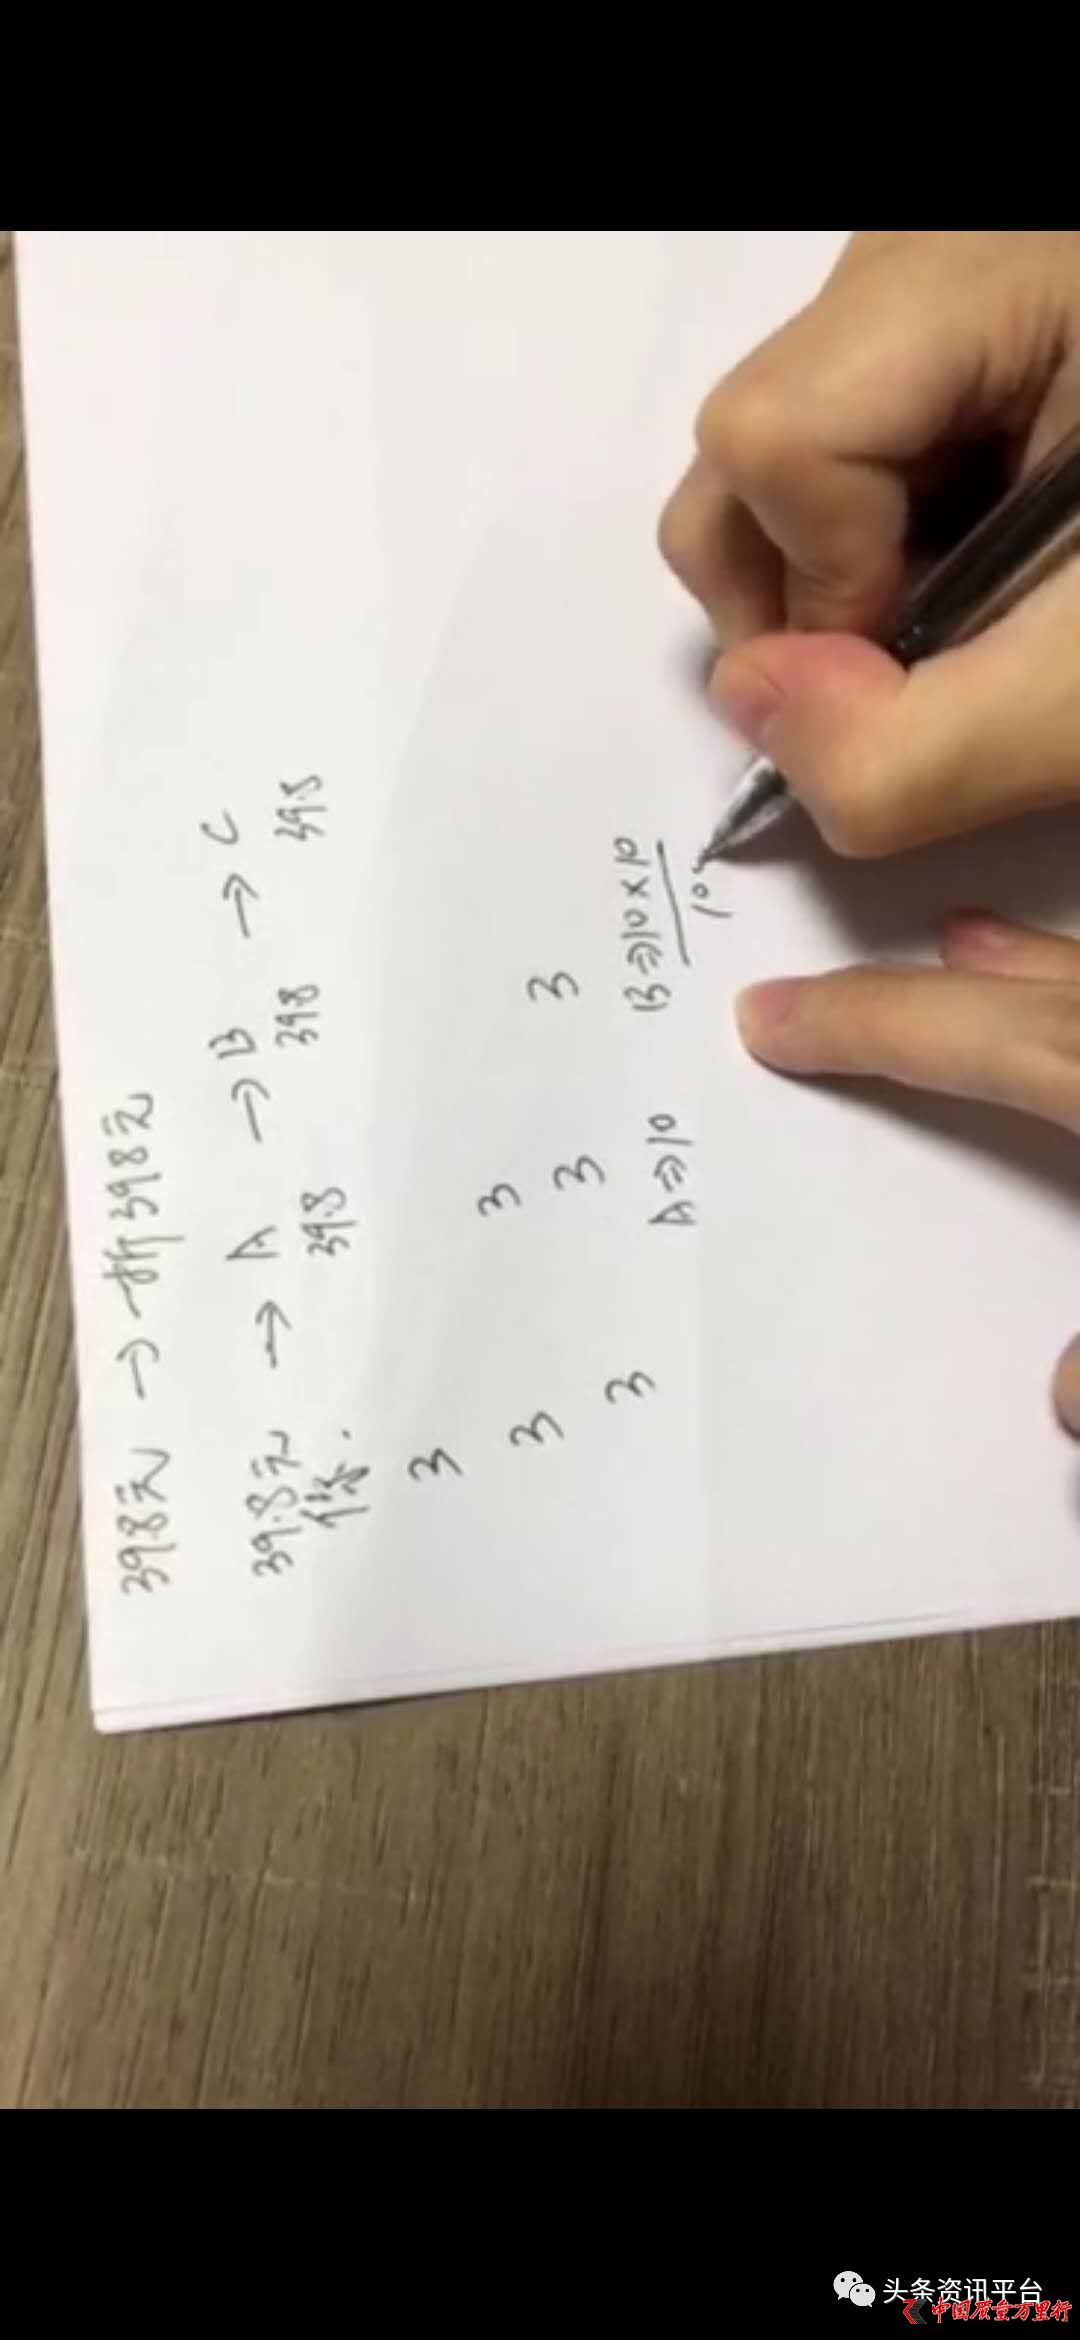 39.8元 → 折398元
39.8元 → A → B → C
39.8 39.8 39.8
3
3 3
3 3 3
A⇒10 B⇒10×10
10
头条资讯平台
中国质量万里行